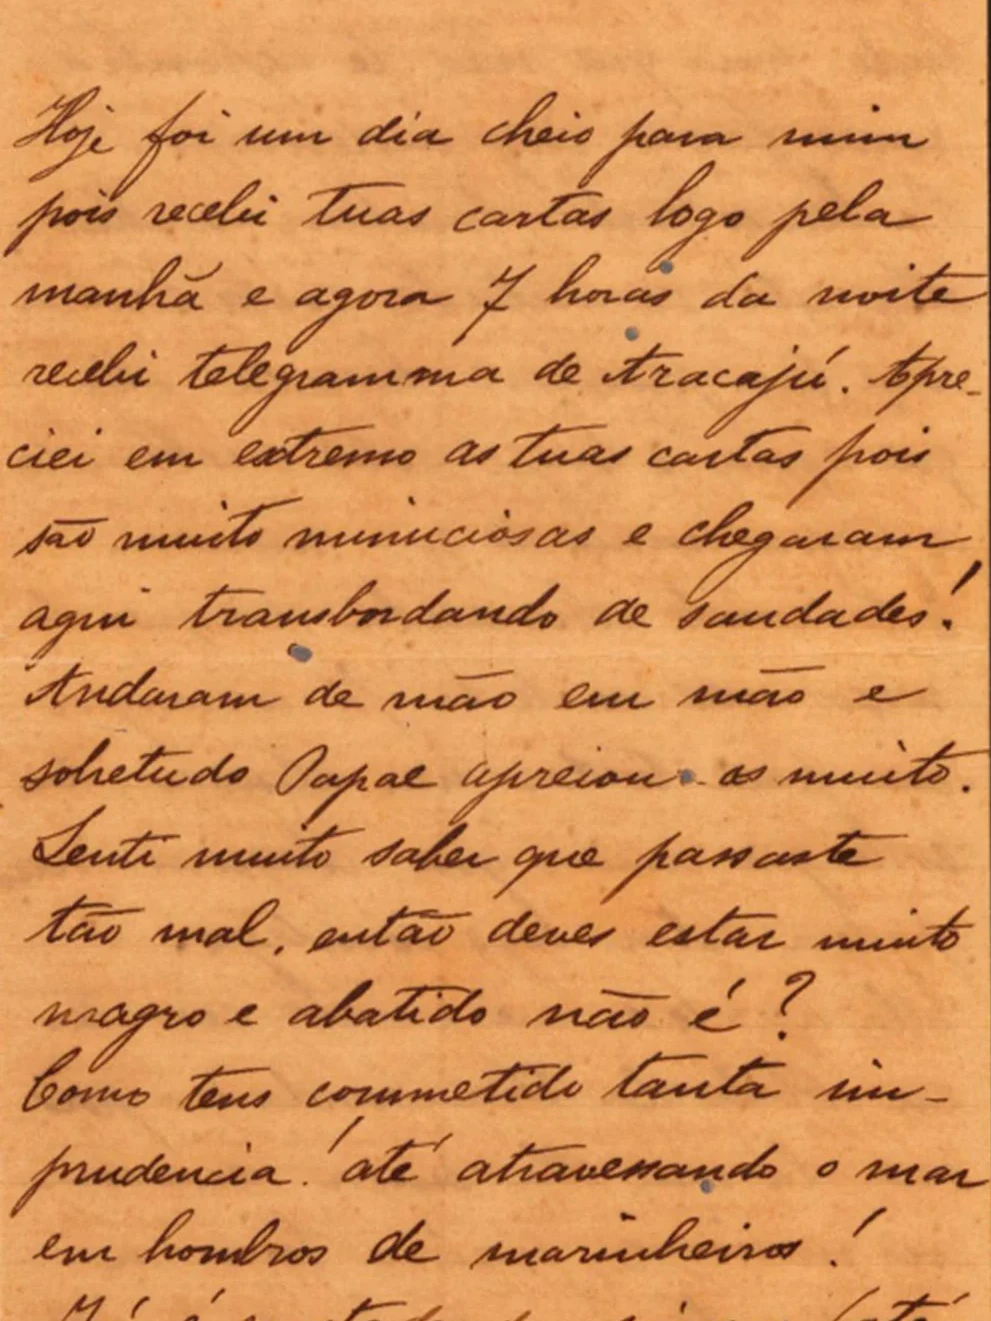 Hoje foi um dia cheio para mim
pois recebi tuas cartas logo pela
manhã e agora 7 horas da noite
recebi telegramma de Aracajú. Apre-
ciei em extremo as tuas cartas pois
são muito minuciosas e chegaram
aqui transbordando de saudades!
Andaram de mão em mão e
sobretudo Papae apreiou-as muito.
Senti muito saber que passaste
tão mal, então deves estar muito
magro e abatido não é?
Como tens commetido tanta im-
prudencia! até atravessando o mar
em hombros de marinheiros!